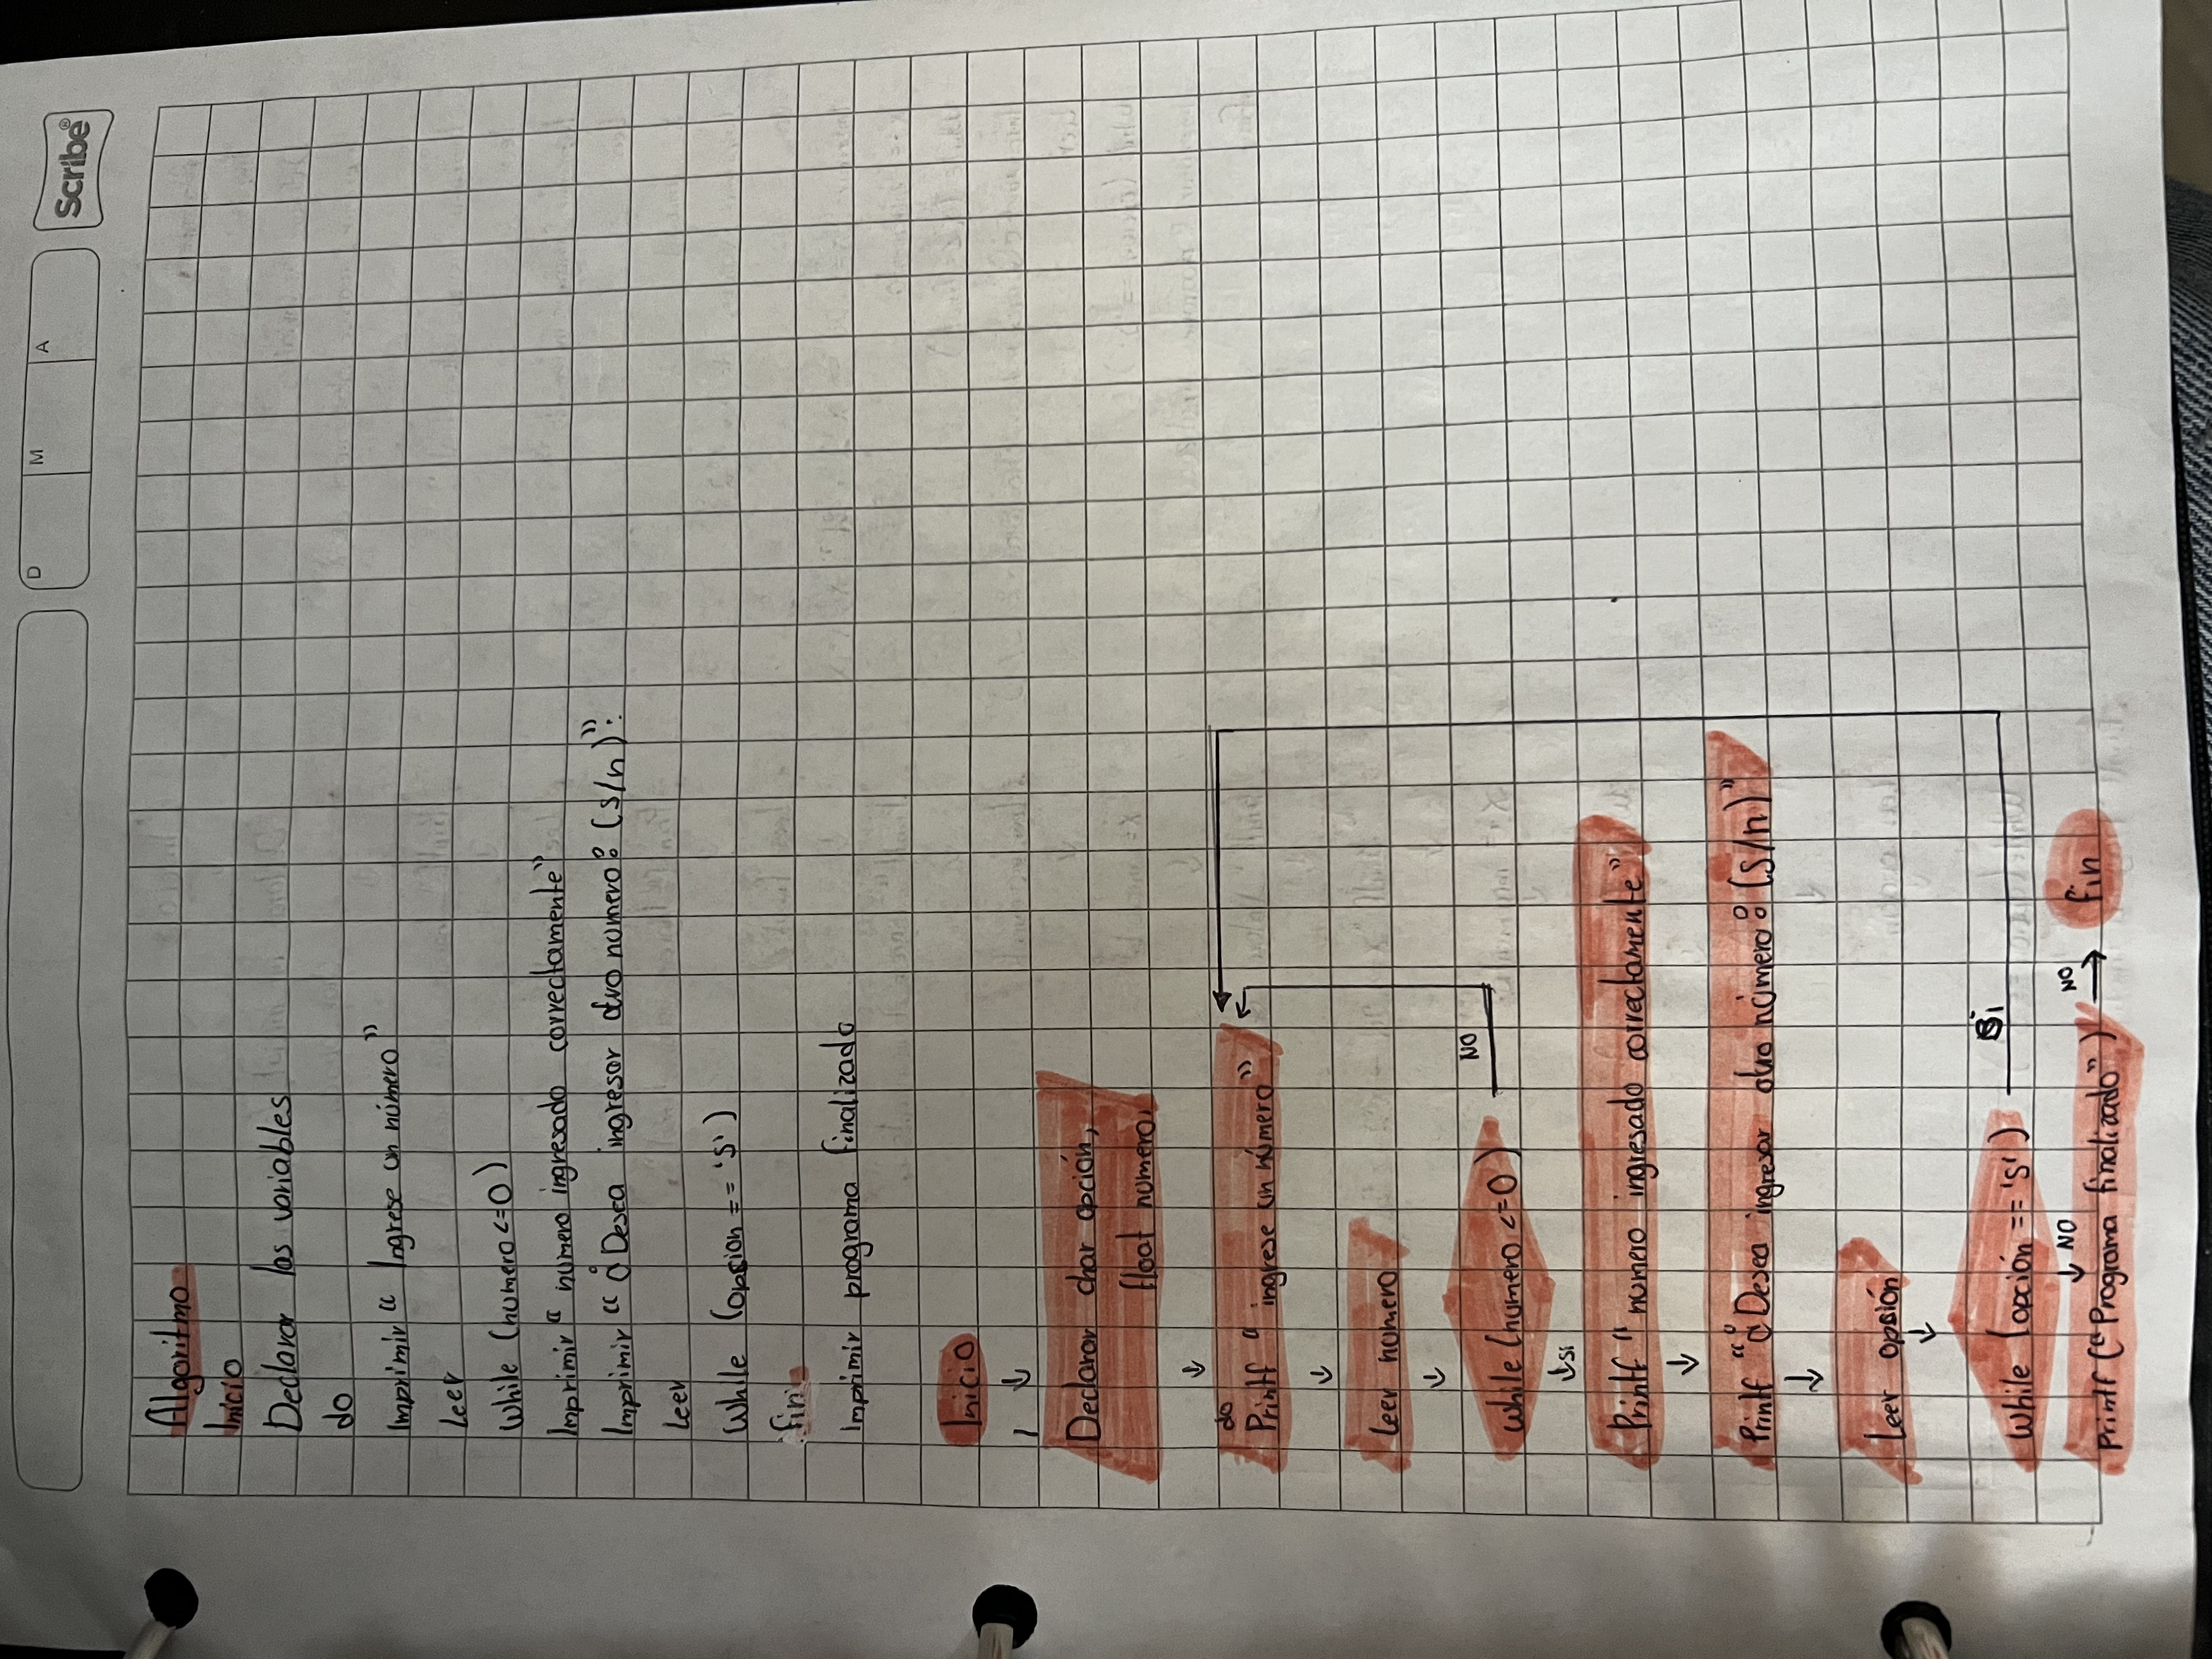 D M A Scribe®
Algoritmo
Inicio
Declarar las variables
do
Imprimir “ Ingrese un número”
Leer
While (numero <=0)
Imprimir “ numero ingresado correctamente”
Imprimir “ ¿Desea ingresar otro numero? (s/n)”:
Leer
While (opcion == 's')
fin
Imprimir programa finalizado
Inicio
↓
Declarar char opción,
float numero,
↓
do
Printf “ ingrese un número”
↓
Leer numero
↓
while (numero <=0) NO
↓ si
Printf “ numero ingresado correctamente”
↓
Printf “¿Desea ingresar otro número? (s/n)”
↓
Leer opsión
↓
While (opción == 's') Si
↓ NO
printf (“Programa finalizado”) NO → fin